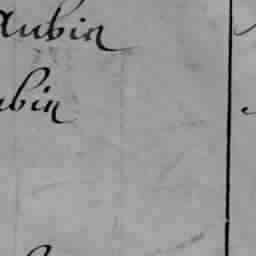 Aubin
ubin